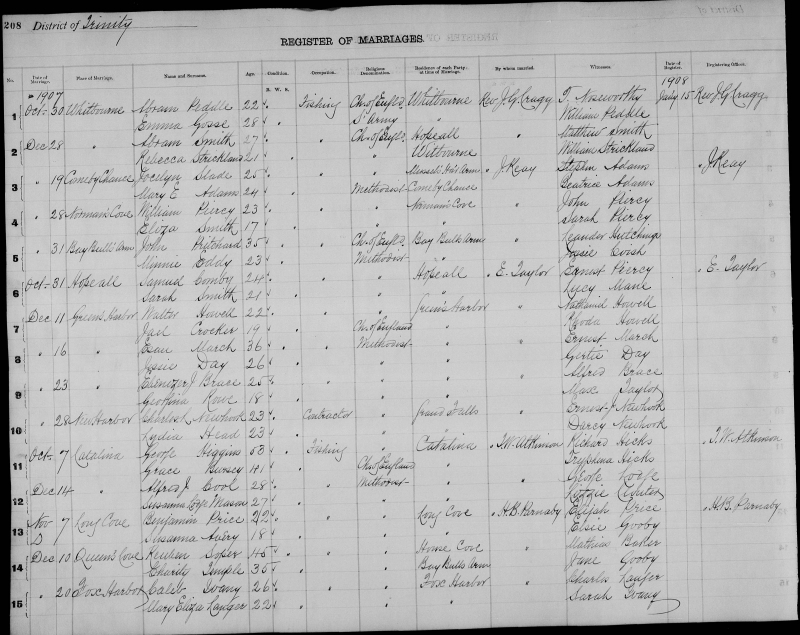 208 District of Trinity
REGISTER OF MARRIAGES.
No. Date of Marriage. Place of Marriage. Name and Surname. Age. Condition. Occupation. Religious Denomination. Residence of each Party at time of Marriage. By whom married. Witnesses. Date of Register. Registering Officer.
B. W. S.
1907 1908
1 Oct 30 Whitbourne Abram Peddle 22 " Fishing Ch. of Engld. Whitbourne Rev J. G. Cragg T. Noseworthy Jany 15 Rev J. G. Cragg
Emma Gosse 28 " S. Army " William Peddle
2 Dec 28 " Abram Smith 27 " " Ch. of Engld. Hopeall " Matthew Smith
Rebecca Strickland 21 " " Witbourne William Strickland
3 " 19 Come by Chance Jocelyn Slade 25 " " " Arm " J. Reay Stephen Adams " J. Reay
Mary E. Adams 24 " Methodist Come by Chance Beatrice Adams
4 " 28 Norman's Cove William Piercy 23 " " " Norman's Cove " John Piercy
Eliza Smith 17 " " " Sarah Piercy
5 " 31 Bay Bulls Arm John Pritchard 35 " " Ch. of Engld. Bay Bulls Arm " Leander
Minnie Eddy 23 " Methodist "
6 Oct 31 Hopeall Samuel 24 " " " Hopeall " E. Taylor Ernest Piercy " E. Taylor
Sarah Smith 21 " " " Lucy
7 Dec 11 Green's Harbor Walter Howell 22 " " " Green's Harbor " Nathaniel Howell
Crocker 19 " Ch. of England " Rhoda Howell
8 " 16 " March 36 " " Methodist " " Ernest March
Jessie Day 26 " " " Gertie Day
9 " 23 " Ebenezer J Brace 25 " " " " " Alfred Brace
Georgina Rowe 18 " " " Taylor
10 " 28 New Harbor Newhook 23 " Contractor " Grand Falls " Ernest J Newhook
Lydia Head 23 " " " Darcy Newhook
11 Oct 7 Catalina George Higgins 53 " Fishing " Catalina " T. W. Atkinson Richard Hicks " T. W. Atkinson
Grace Bursey 41 " Ch. of England " Tryphena Hicks
12 Dec 14 " Alfred J. Cool 28 " " Methodist " " George
Susanna Mason 27 " " "
13 Nov 7 Long Cove Benjamin Price 22 " " " Long Cove " H. B. Parnaby Elijah Price " H. B. Parnaby
Susanna Avery 18 " " " Elsie Gooby
14 Dec 10 Queens Cove Reuben Soper 45 " " " Cove " Baker
Charity Temple 35 " " Bay Bulls Arm Jane Gooby
15 " 20 Fox Harbor Caleb Ivany 26 " " " Fox Harbor " Charles
Mary Eliza 22 " " " Sarah Ivany